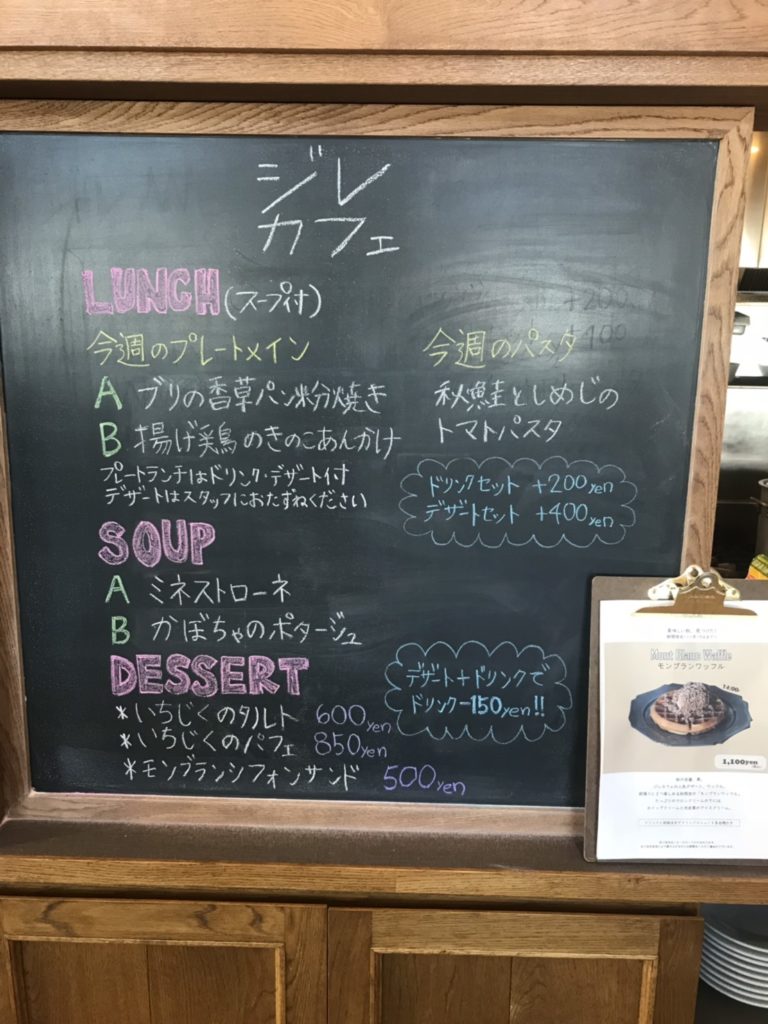 ジレ
カフェ
LUNCH (スープ付)
今週のプレートメイン
A ブリの香草パン粉焼き
B 揚げ鶏のきのこあんかけ
プレートランチはドリンク・デザート付
デザートはスタッフにおたずねください
今週のパスタ
秋鮭としめじの
トマトパスタ
ドリンクセット +200yen
デザートセット +400yen
SOUP
A ミネストローネ
B かぼちゃのポタージュ
DESSERT
*いちじくのタルト 600yen
*いちじくのパフェ 850yen
*モンブランシフォンサンド 500yen
デザート+ドリンクで
ドリンク-150yen!!
Mont Blanc Waffle
モンブランワッフル
1,100yen